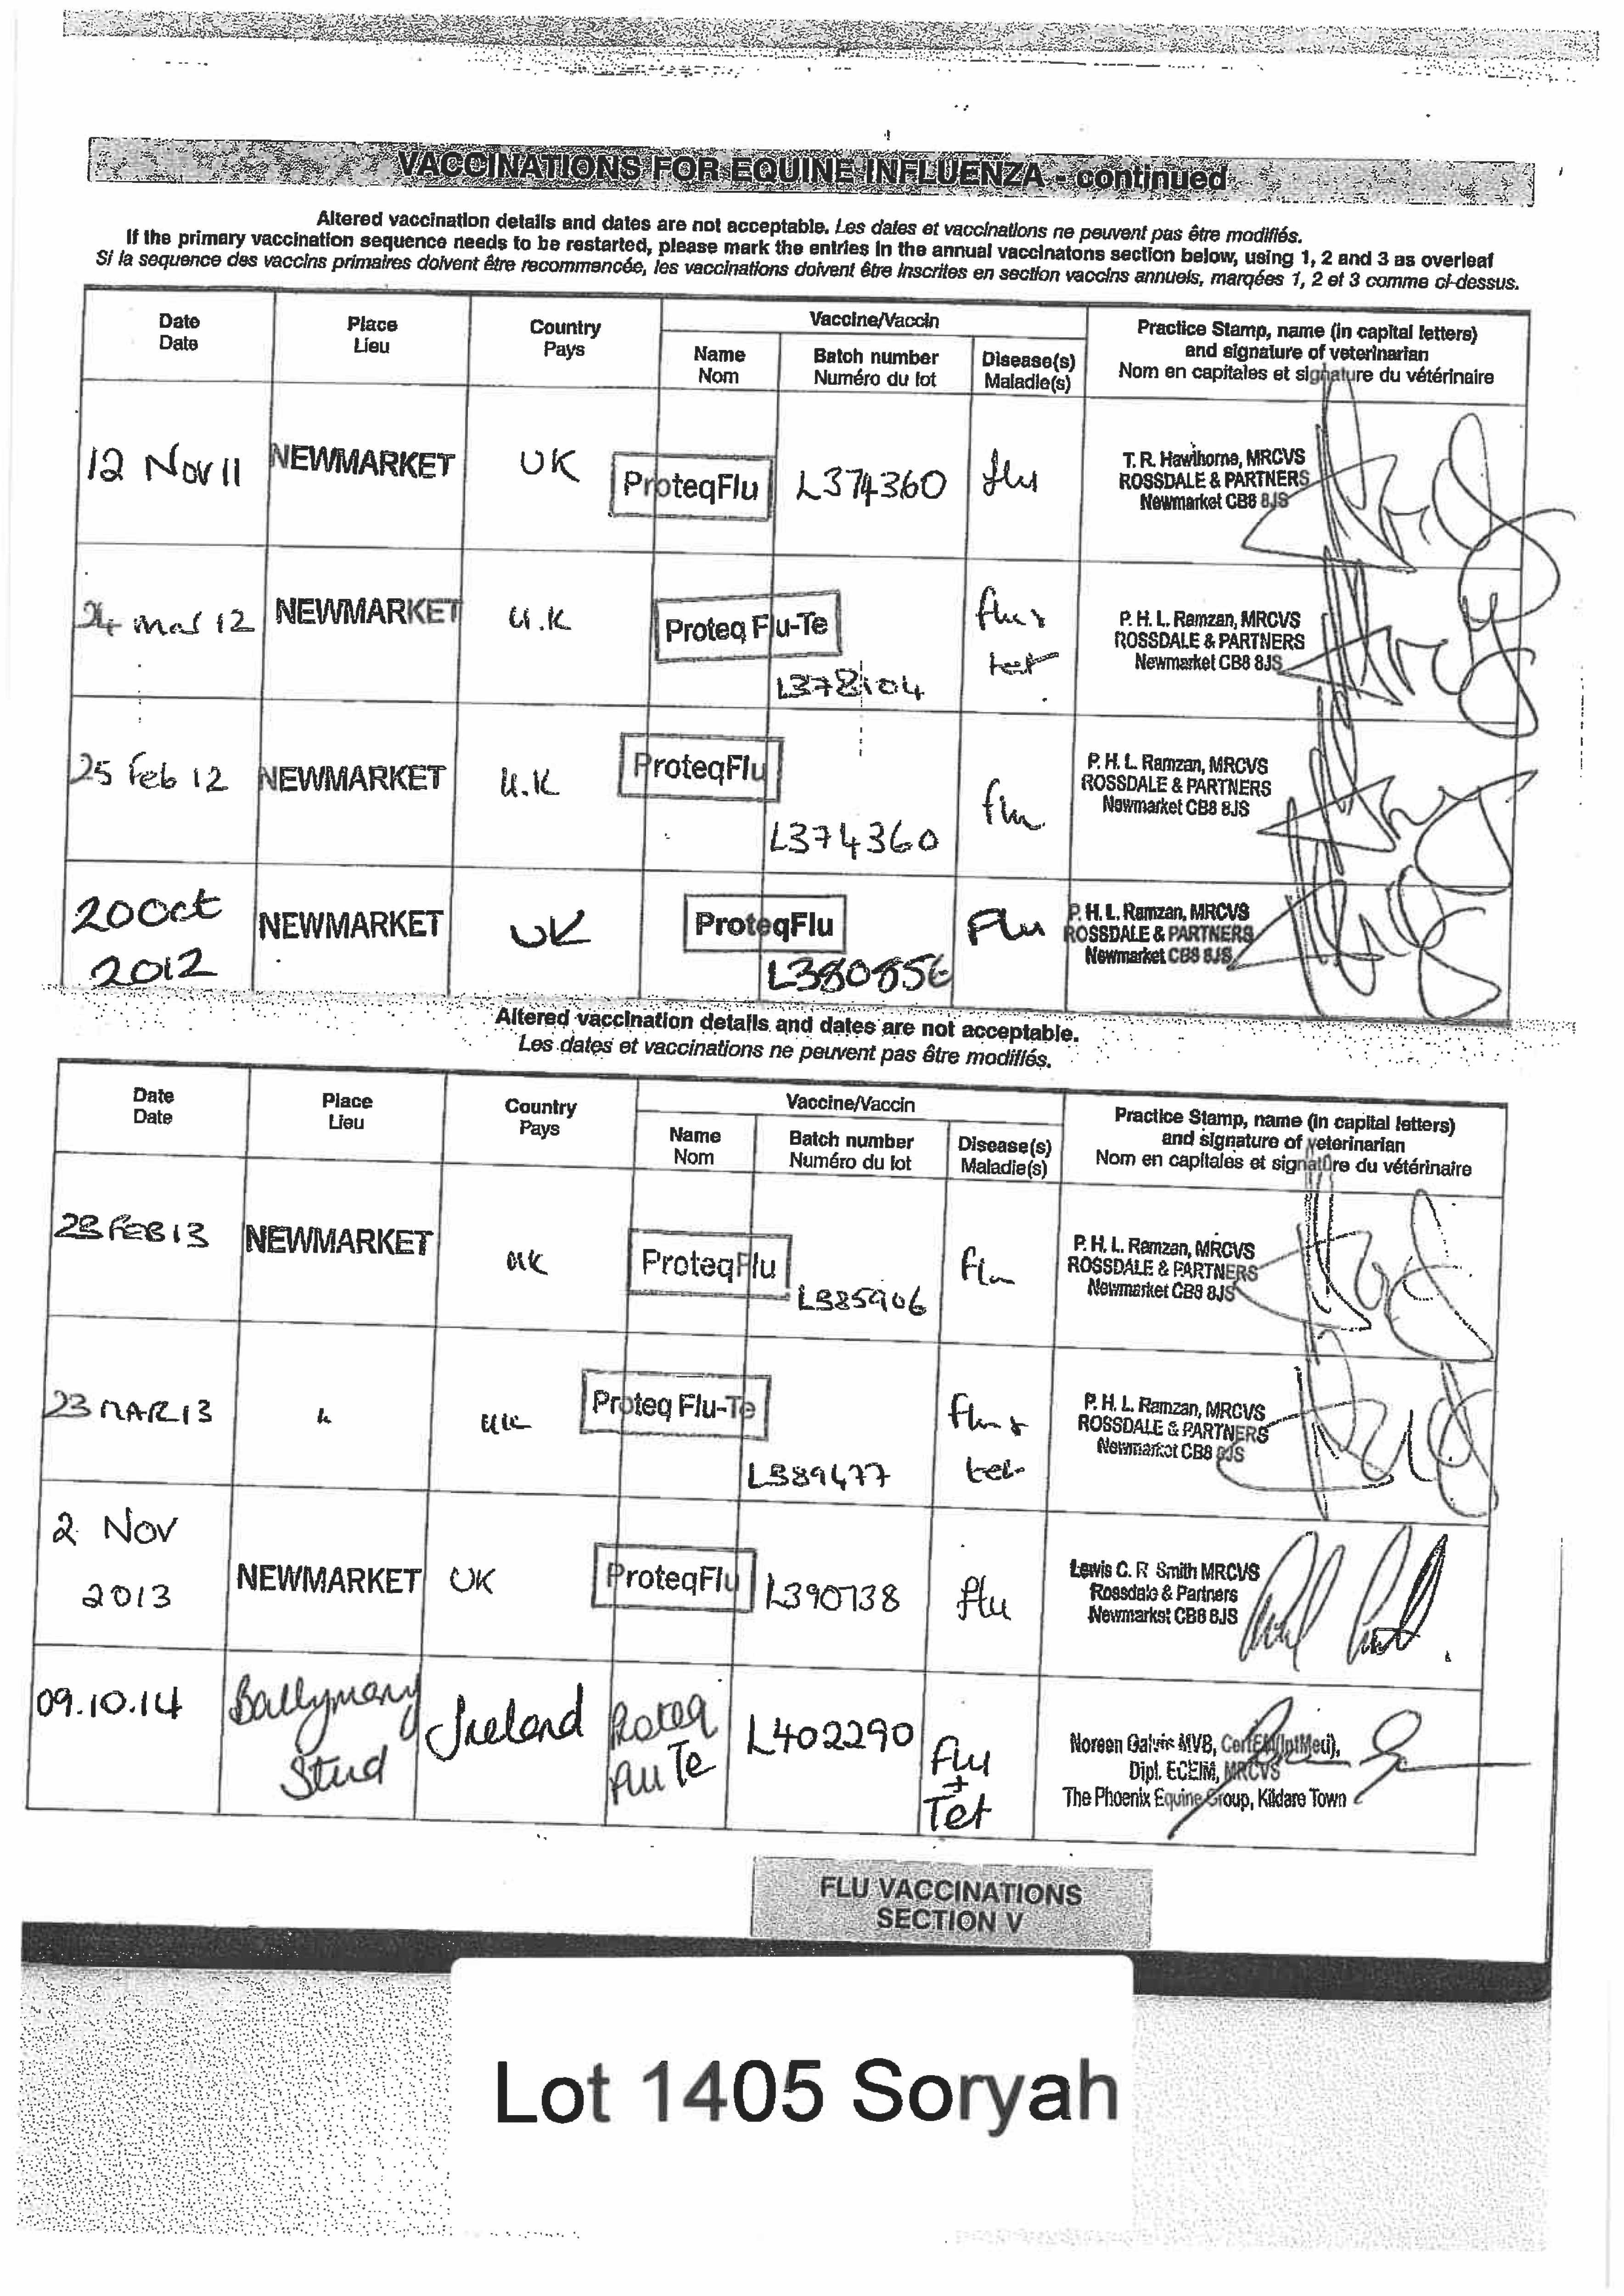 VACCINATIONS FOR EQUINE INFLUENZA - continued
Altered vaccination details and dates are not acceptable. Les dates et vaccinations ne peuvent pas être modifiés.
If the primary vaccination sequence needs to be restarted, please mark the entries in the annual vaccinatons section below, using 1, 2 and 3 as overleaf
Si la sequence des vaccins primaires doivent être recommencée, les vaccinations doivent être inscrites en section vaccins annuels, marqées 1, 2 et 3 comme ci-dessus.
Date Place Country Vaccine/Vaccin Practice Stamp, name (in capital letters)
Date Lieu Pays Name Batch number Disease(s) and signature of veterinarian
Nom Numéro du lot Maladie(s) Nom en capitales et signature du vétérinaire
12 Nov 11 NEWMARKET UK ProteqFlu L374360 flu T. R. Hawthorne, MRCVS
ROSSDALE & PARTNERS
Newmarket CB8 8JS
24 Mar 12 NEWMARKET U.K Proteq Flu-Te flu + P. H. L. Ramzan, MRCVS
L378104 tet ROSSDALE & PARTNERS
Newmarket CB8 8JS
25 Feb 12 NEWMARKET U.K ProteqFlu flu P. H. L. Ramzan, MRCVS
L374360 ROSSDALE & PARTNERS
Newmarket CB8 8JS
20 Oct NEWMARKET UK ProteqFlu Flu P. H. L. Ramzan, MRCVS
2012 L380856 ROSSDALE & PARTNERS
Newmarket CB8 8JS
Altered vaccination details and dates are not acceptable.
Les dates et vaccinations ne peuvent pas être modifiés.
Date Place Country Vaccine/Vaccin Practice Stamp, name (in capital letters)
Date Lieu Pays Name Batch number Disease(s) and signature of veterinarian
Nom Numéro du lot Maladie(s) Nom en capitales et signature du vétérinaire
FEB 13 NEWMARKET UK ProteqFlu flu P. H. L. Ramzan, MRCVS
L385906 ROSSDALE & PARTNERS
Newmarket CB8 8JS
23 MAR 13 " UK Proteq Flu-Te flu + P. H. L. Ramzan, MRCVS
L389477 tet ROSSDALE & PARTNERS
Newmarket CB8 8JS
2 Nov NEWMARKET UK ProteqFlu L390738 flu Lewis C. R Smith MRCVS
2013 Rossdale & Partners
Newmarket CB8 8JS
09.10.14 Ballymany Ireland Proteq L402290 Flu Noreen Galvin MVB, CertEM(IntMed),
Stud Flu Te + Dipl. ECEIM, MRCVS
Tet The Phoenix Equine Group, Kildare Town
FLU VACCINATIONS
SECTION V
Lot 1405 Soryah